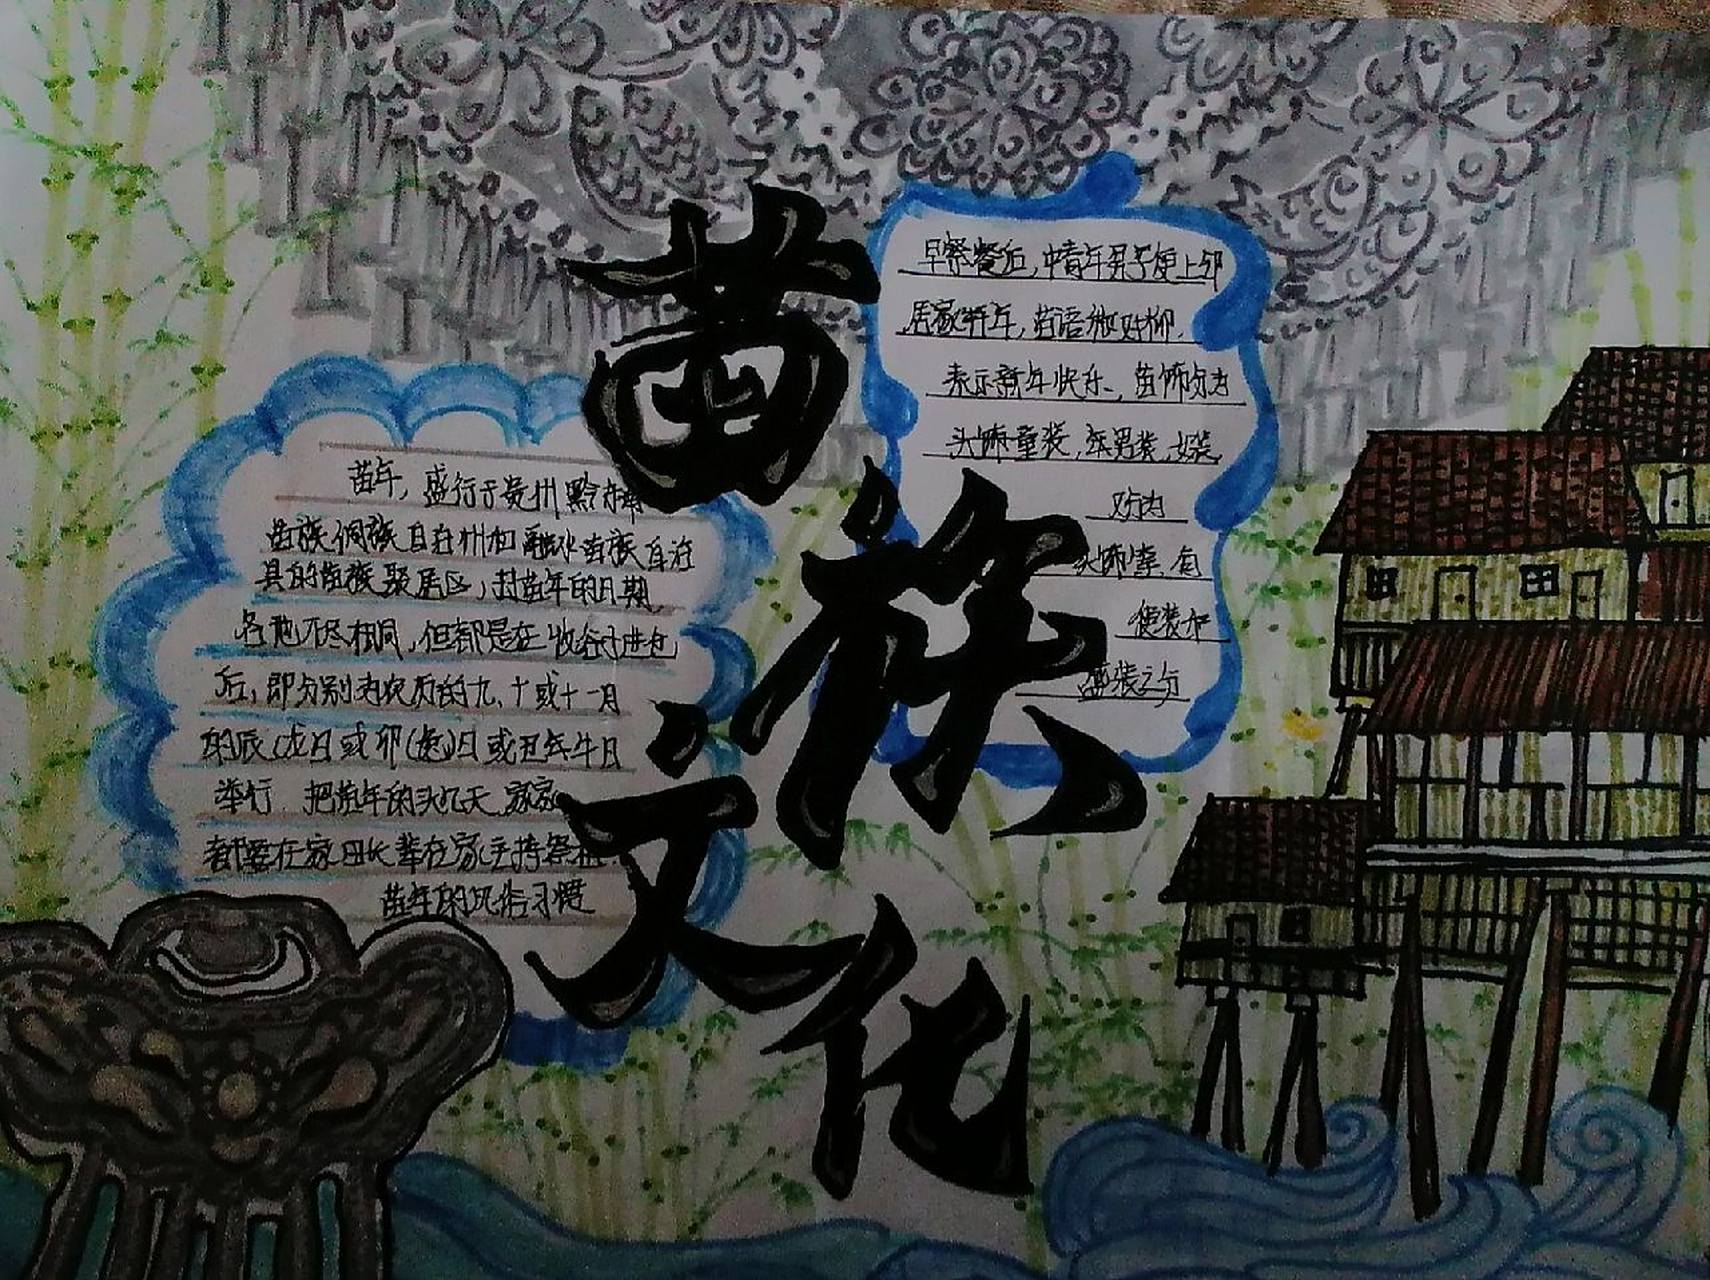 苗族文化
苗年，盛行于贵州黔东南
苗族侗族自治州和融水苗族自治
县的苗族聚居区，过苗年的日期
各地不尽相同，但都是在收谷子进仓
后，即分别为农历的九、十或十一月
的辰(龙)日或卯(兔)日或丑(牛)日
举行 把苗年的头几天，家家
都要在家由长辈在家主持祭祖.
苗年的风俗习惯
早祭餐后，中青年男子便上邻
居家拜年，苗语
表示新年快乐、苗饰分为
头饰童装，男装，女装
头饰
便装和
盛装之分